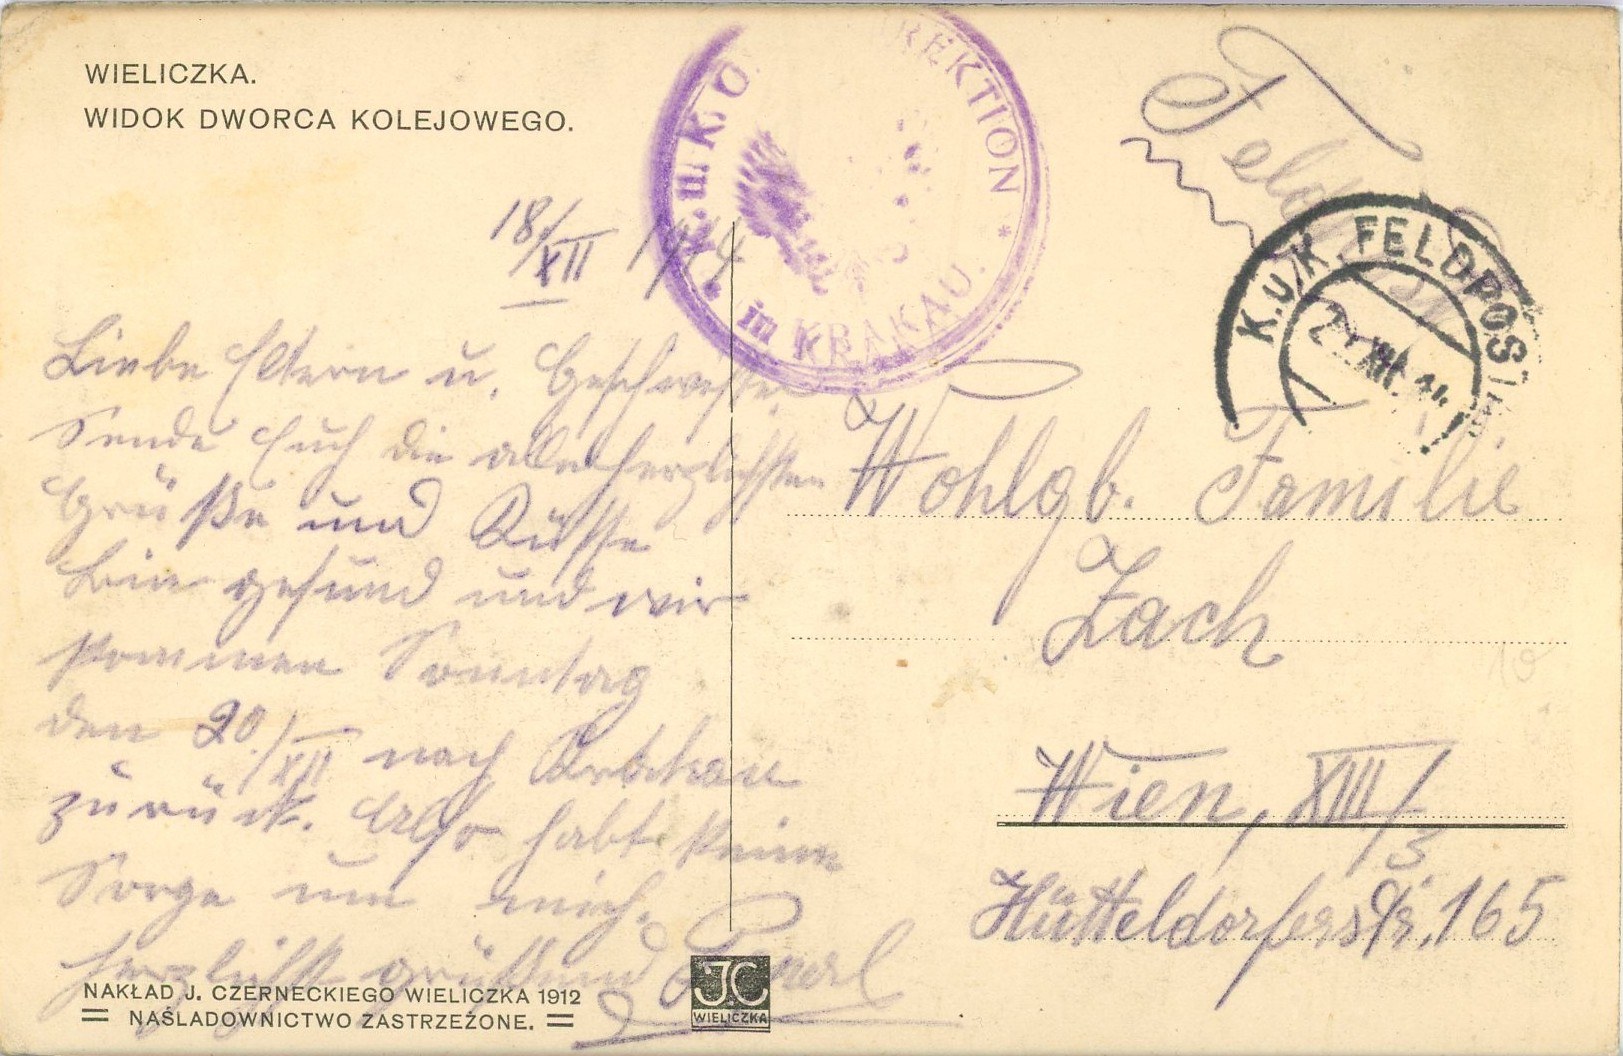 WIELICZKA.
WIDOK DWORCA KOLEJOWEGO.
K. u. K. REKTION
in KRAKAU.
Feldpost
K.u.K. FELDPOST
XII. 14
18/XII 1914
Liebe Eltern u. Geschwister
Sende Euch die allerherzlichsten
Grüße und Küsse
Bin gesund und wir
kommen Sonntag
den 20./XII nach Krakau
zurück. Also habt keine
Sorge um mich.
herzlichst grüßend
Wohlgb. Familie
Zach
Wien, XIII/3
Hütteldorferstr. 165
NAKŁAD J. CZERNECKIEGO WIELICZKA 1912
= NAŚLADOWNICTWO ZASTRZEŻONE. =
J.C
WIELICZKA